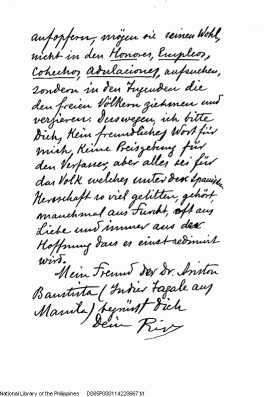 aufopfern, mögen sie seinen Wohl,
nicht in den Honores, Empleos,
Cohechos, Adulaciones, aufsuchen,
sondern in den Tugenden die
den freien Völkern ziehmen und
verzieren. Deswegen, ich bitte
Dich, kein freundliches Wort für
mich, keine Preisgebung für
den Verfasser, aber alles sei für
das Volk welches unter der spanischen
Herrschaft so viel gelitten, gehört
manchmal aus Furcht, oft aus
Liebe und immer aus der
Hoffnung dass es einst redimirt
wird.
Mein Freund der Dr. Ariston
Bautista (Indier Tagale aus
Manila) begrüsst Dich
Dein Rizal
National Library of the Philippines